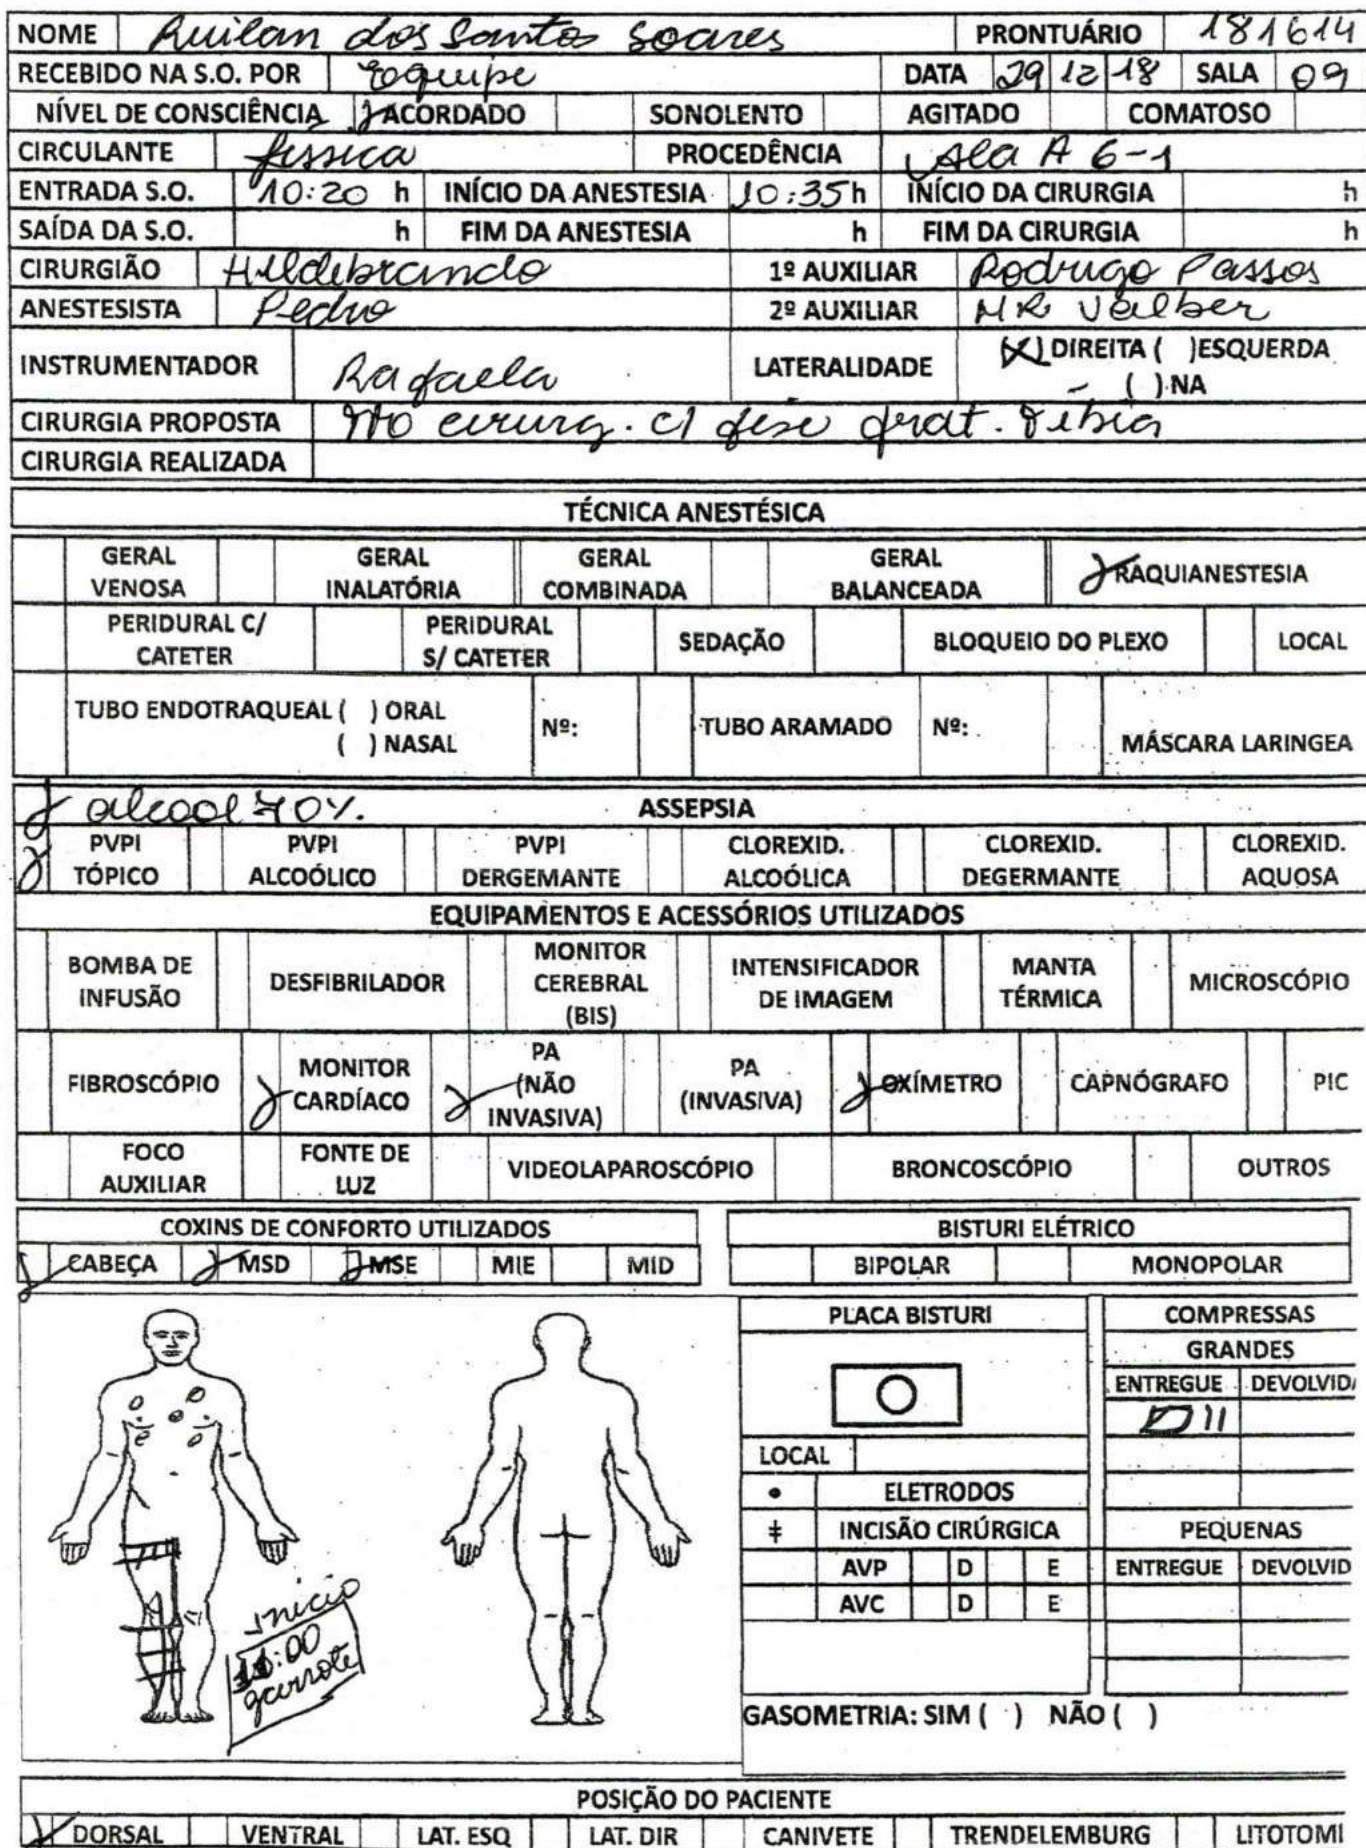 NOME Ruilan dos Santos Soares PRONTUÁRIO 181614
RECEBIDO NA S.O. POR Equipe DATA 29 12 18 SALA 09
NÍVEL DE CONSCIÊNCIA ACORDADO SONOLENTO AGITADO COMATOSO
CIRCULANTE Jessica PROCEDÊNCIA Ala A 6-1
ENTRADA S.O. 10:20 h INÍCIO DA ANESTESIA 10:35 h INÍCIO DA CIRURGIA h
SAÍDA DA S.O. h FIM DA ANESTESIA h FIM DA CIRURGIA h
CIRURGIÃO Hildebrando 1º AUXILIAR Rodrigo Passos
ANESTESISTA Pedro 2º AUXILIAR MR Valber
INSTRUMENTADOR Rafaela LATERALIDADE (X) DIREITA ( )ESQUERDA
( ) NA
CIRURGIA PROPOSTA tto cirurg. c/ frat. Tibia
CIRURGIA REALIZADA
TÉCNICA ANESTÉSICA
GERAL VENOSA GERAL INALATÓRIA GERAL COMBINADA GERAL BALANCEADA RAQUIANESTESIA
PERIDURAL C/ CATETER PERIDURAL S/ CATETER SEDAÇÃO BLOQUEIO DO PLEXO LOCAL
TUBO ENDOTRAQUEAL ( ) ORAL Nº: TUBO ARAMADO Nº: MÁSCARA LARINGEA
( ) NASAL
alcool 70%. ASSEPSIA
PVPI TÓPICO PVPI ALCOÓLICO PVPI DERGEMANTE CLOREXID. ALCOÓLICA CLOREXID. DEGERMANTE CLOREXID. AQUOSA
EQUIPAMENTOS E ACESSÓRIOS UTILIZADOS
BOMBA DE INFUSÃO DESFIBRILADOR MONITOR CEREBRAL (BIS) INTENSIFICADOR DE IMAGEM MANTA TÉRMICA MICROSCÓPIO
FIBROSCÓPIO MONITOR CARDÍACO PA (NÃO INVASIVA) PA (INVASIVA) OXÍMETRO CAPNÓGRAFO PIC
FOCO AUXILIAR FONTE DE LUZ VIDEOLAPAROSCÓPIO BRONCOSCÓPIO OUTROS
COXINS DE CONFORTO UTILIZADOS BISTURI ELÉTRICO
CABEÇA MSD MSE MIE MID BIPOLAR MONOPOLAR
PLACA BISTURI COMPRESSAS
GRANDES
ENTREGUE DEVOLVIDA
LOCAL
ELETRODOS
INCISÃO CIRÚRGICA PEQUENAS
AVP D E ENTREGUE DEVOLVID
AVC D E
Inicio
11:00
garrote
GASOMETRIA: SIM ( ) NÃO ( )
POSIÇÃO DO PACIENTE
DORSAL VENTRAL LAT. ESQ LAT. DIR CANIVETE TRENDELEMBURG LITOTOMI